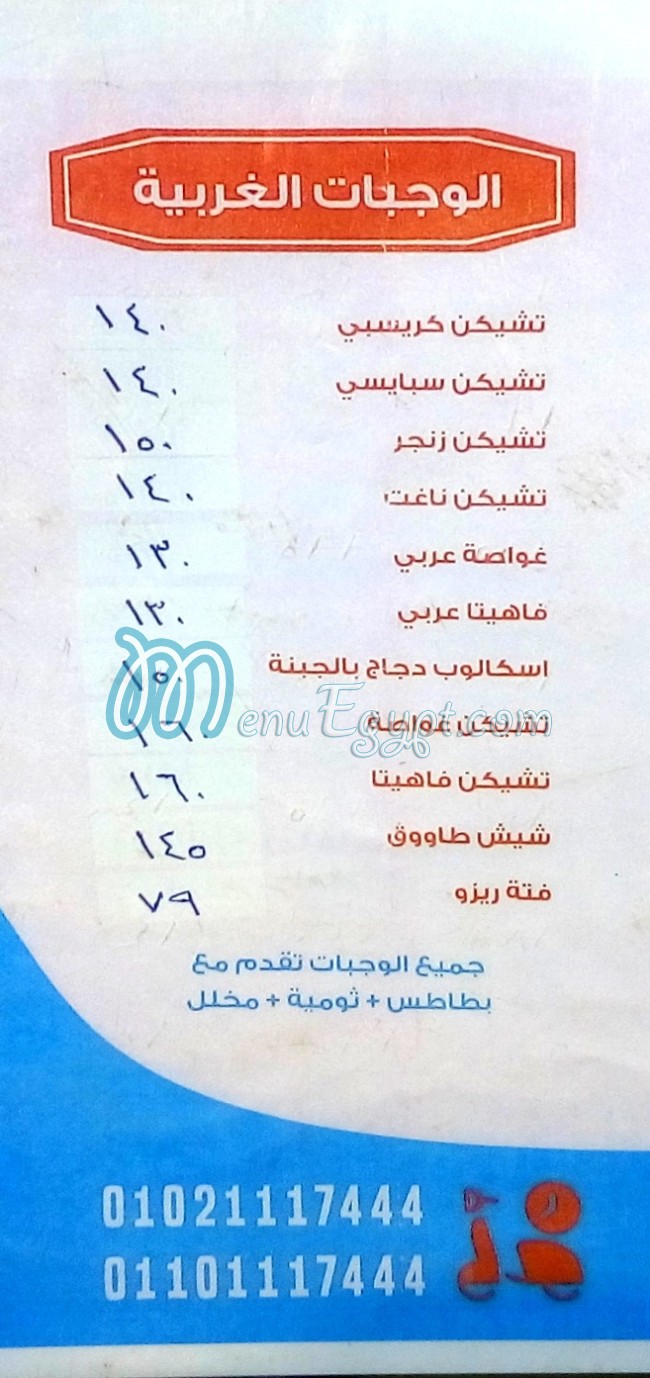 الوجبات الغربية
تشيكن كريسبي ١٤٠
تشيكن سبايسي ١٤٠
تشيكن زنجر ١٥٠
تشيكن ناغت ١٤٠
غواصة عربي ١٣٠
فاهيتا عربي ١٣٠
اسكالوب دجاج بالجبنة ١٥٠
MenuEgypt.com
تشيكن غواصة ١٦٠
تشيكن فاهيتا ١٦٠
شيش طاووق ١٤٥
فتة ريزو ٧٩
جميع الوجبات تقدم مع
بطاطس + ثومية + مخلل
01021117444
01101117444